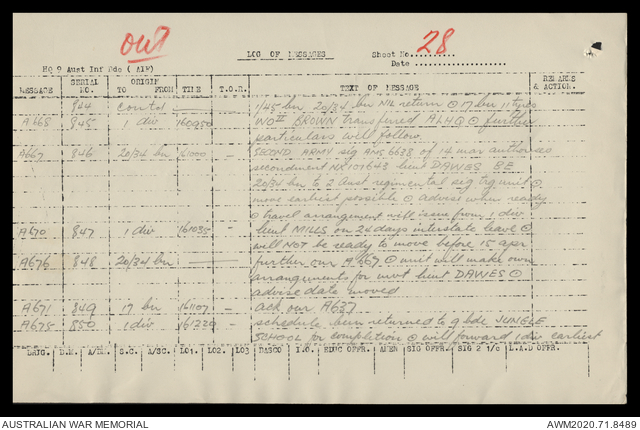 out
LOG OF MESSAGES Sheet No. 28
HQ 9 Aust Inf Bde (AIF) Date
MESSAGE SERIAL NO. ORIGIN TO FROM TIME T.O.R. TEXT OF MESSAGE REMARKS & ACTION.
844 contd 1/45 bn, 20/34 bn NIL return ⊙ 17 bn 11 tyres
A668 845 1 div 160950 — WO II BROWN transfered ALHQ ⊙ further
particulars will follow
A667 846 20/34 bn 161000 — SECOND ARMY sig AMS 6638 of 14 mar authorises
secondment NX 107643 lieut DAWES BE
20/34 bn to 2 Aust regimental sig trg unit ⊙
move earliest possible ⊙ advise when ready
⊙ travel arrangement will issue from 1 div
A670 847 1 div 161035 — lieut MILLS on 24 days interstate leave ⊙
will NOT be ready to move before 15 apr
A676 848 20/34 bn — further our A667 ⊙ unit will make own
arrangements for mvt lieut DAWES ⊙
advise date moved
A671 849 17 bn 161107 — ack our A637
A675 850 1 div 161220 — schedule been returned to 9 bde JUNGLE
SCHOOL for completion ⊙ will forward 1 div earliest
ORIG. D.R. A/TM. S.C. A/SC. LO1. LO2. LO3 BASCO I.O. EDUC OFFR. AMEN SIG OFFR. SIG 2 i/c L.A.D OFFR.
AUSTRALIAN WAR MEMORIAL AWM2020.71.8489